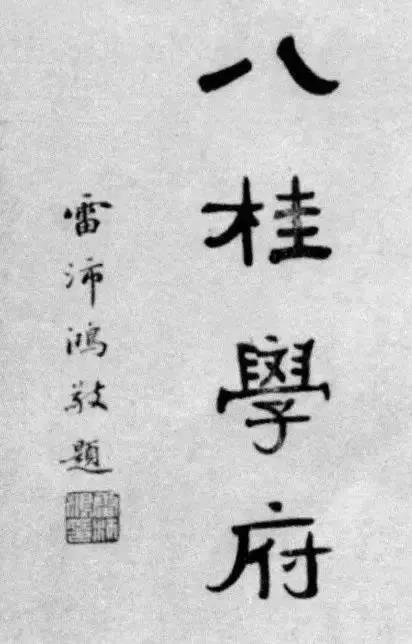 八桂學府
雷沛鴻敬題